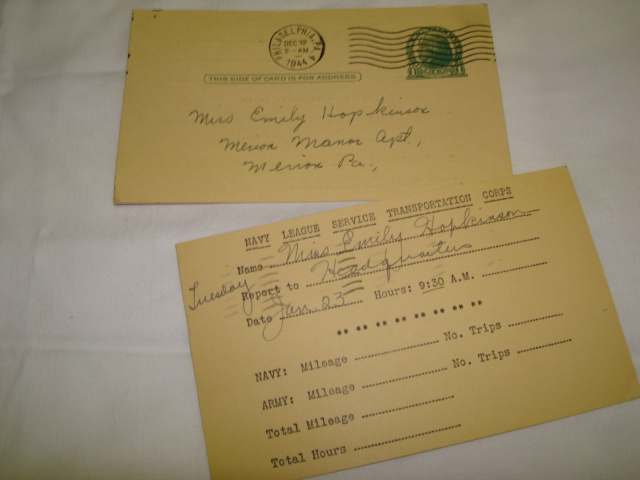 PHILADELPHIA, PA.
DEC
AM
1944
THIS SIDE OF CARD IS FOR ADDRESS
Miss Emily Hopkinson
Merion Manor Apt,
Merion Pa.,
NAVY LEAGUE SERVICE TRANSPORTATION CORPS
Name Miss Emily Hopkinson
Report to Headquarters
Tuesday
Date Jan 23 Hours: 9:30 A.M.
NAVY: Mileage No. Trips
ARMY: Mileage No. Trips
Total Mileage
Total Hours